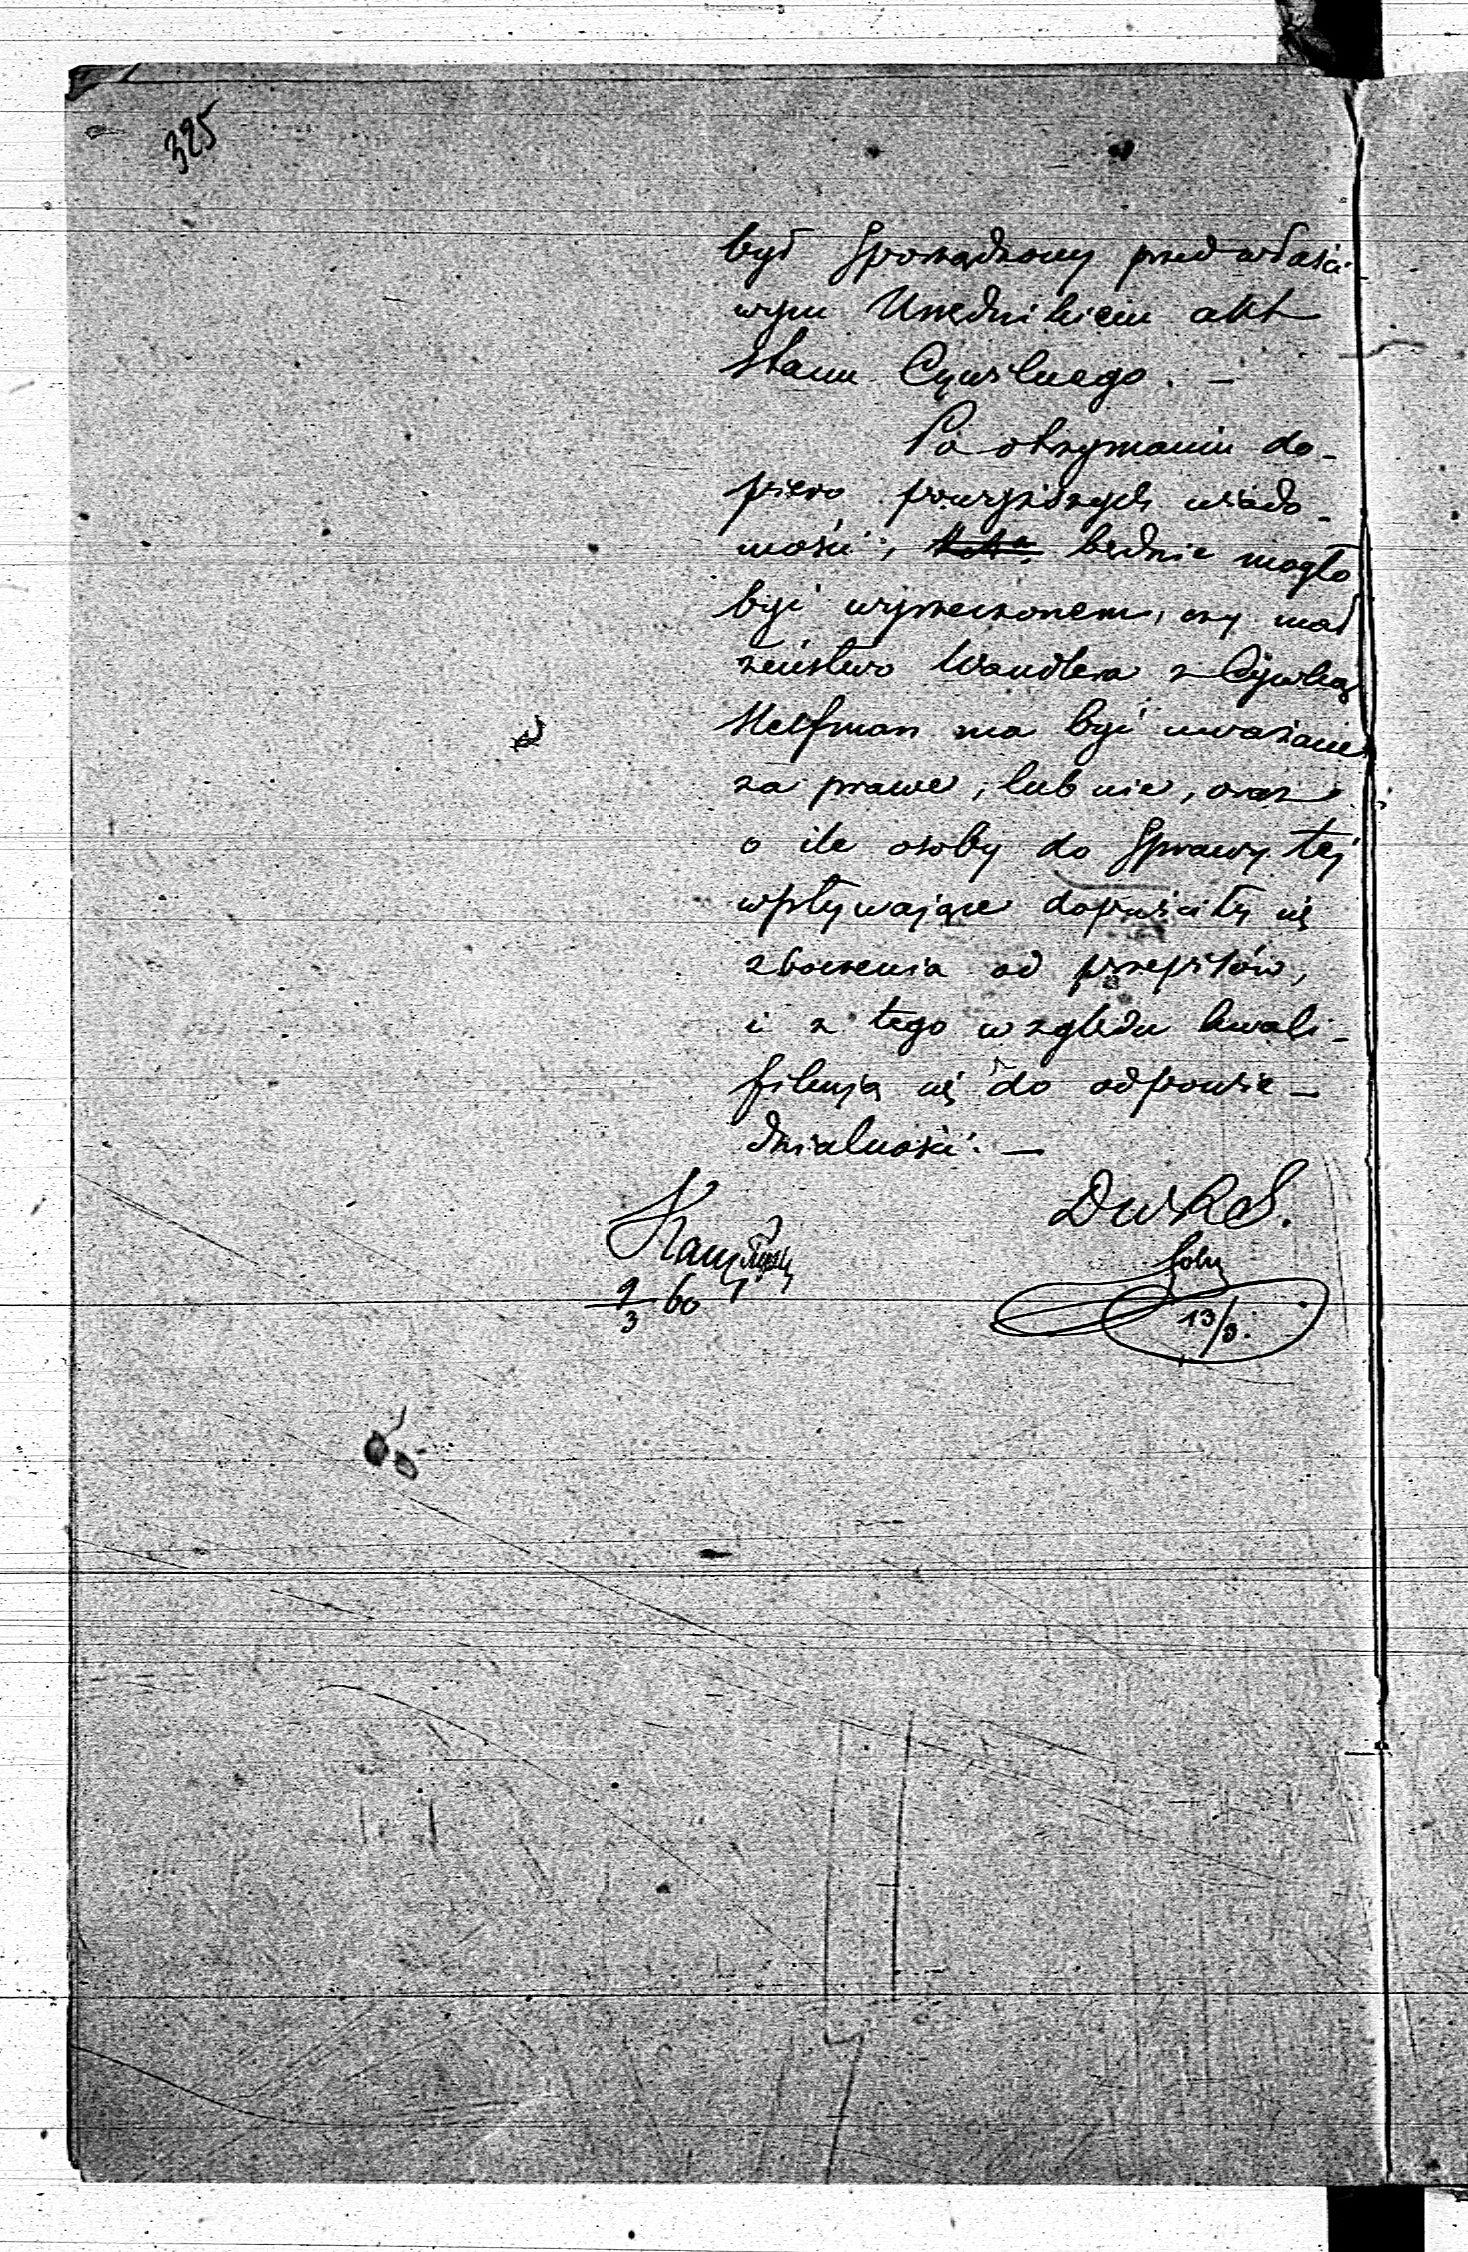 325
był sporządzony przed właści-
wym Urzędnikiem akt
Stanu Cywilnego. —
Po otrzymaniu do-
piero powyższych wiado-
mości, będzie mogło
być wyrzeczonem, czy mał
żeństwo Wandlera z Cywką
Helfman ma być uważane
za prawe, lub nie, oraz
o ile osoby do sprawy tej
wpływające dopuściły się
zboczenia od przepisów,
i z tego względu kwali-
fikują się do odpowie-
dzialności. —
DWRS.
9/3 60
13/3.